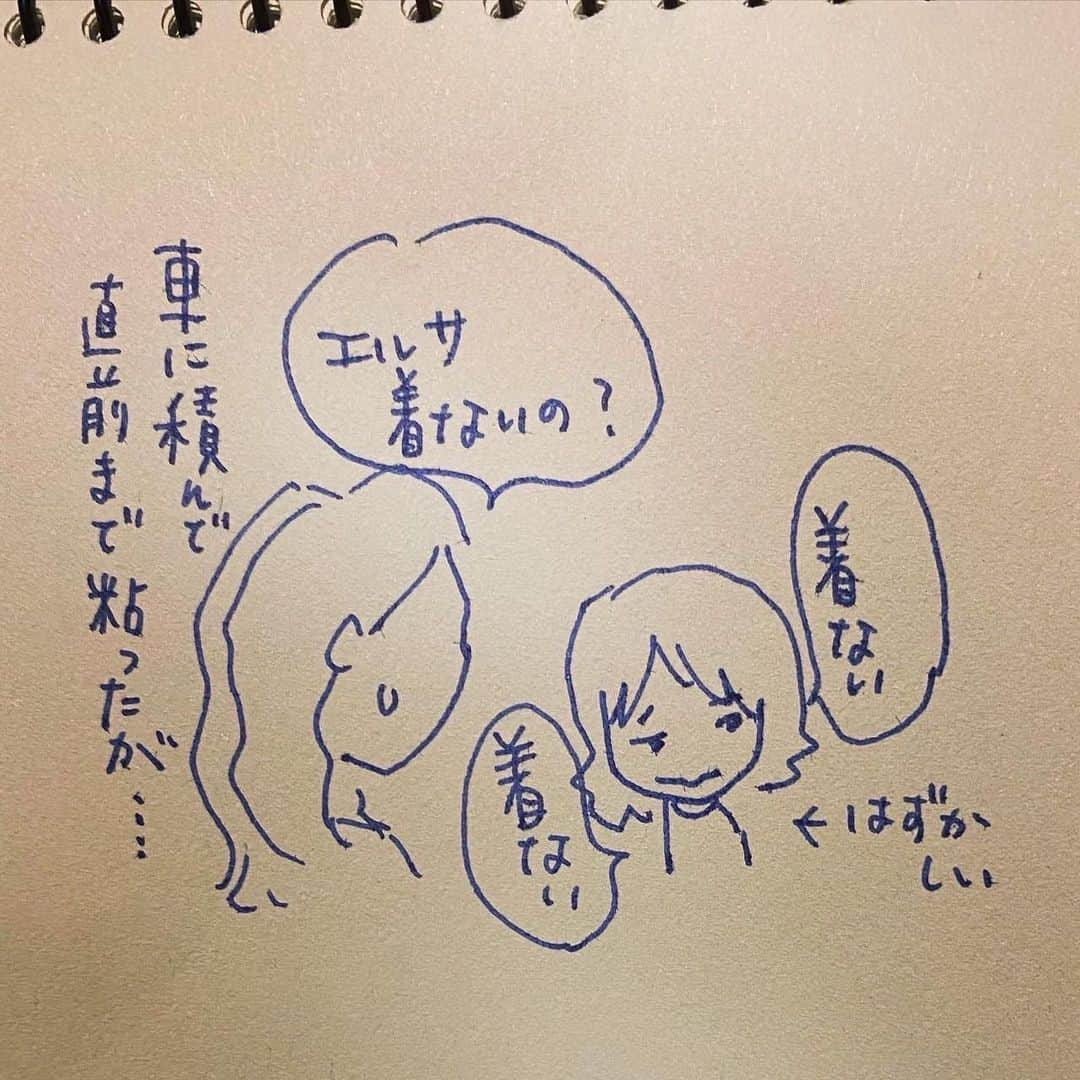 車に積んで
直前まで粘ったが…
エルサ
着ないの？
着ない
着ない
←はずか
しい